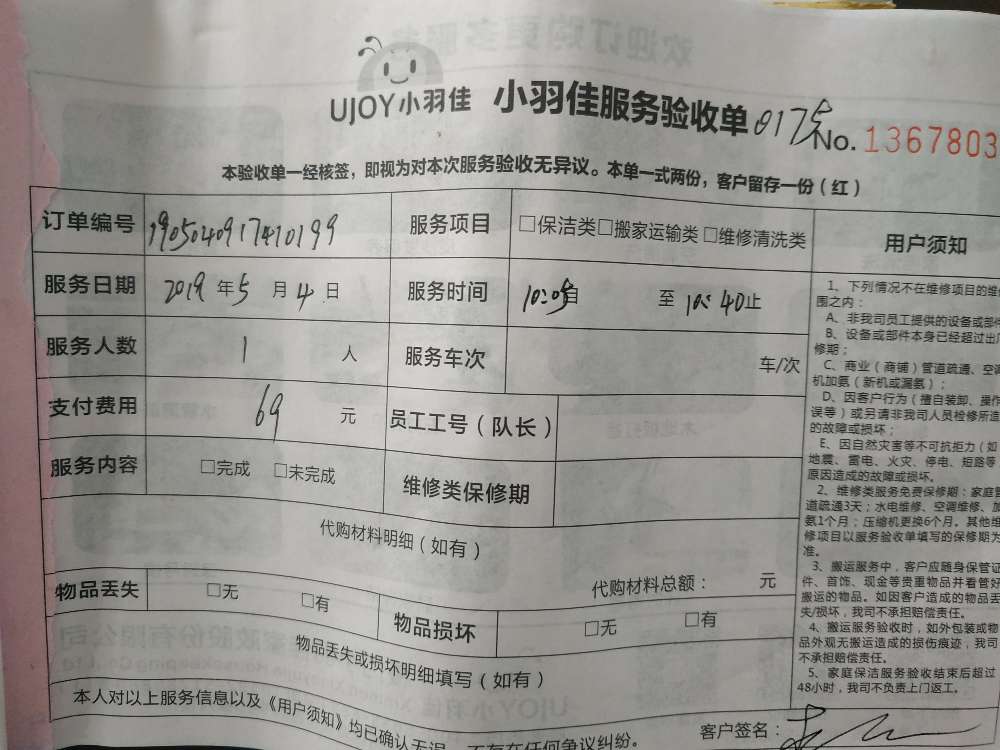 UJOY小羽佳 小羽佳服务验收单 No. 1367803
本验收单一经核签，即视为对本次服务验收无异议。本单一式两份，客户留存一份（红）
订单编号 190504091741019 9 服务项目 □保洁类□搬家运输类□维修清洗类
服务日期 2019年5月4日 服务时间 10:05自 至10:40止
服务人数 1人 服务车次 车/次
支付费用 69元 员工工号（队长）
服务内容 □完成 □未完成 维修类保修期
代购材料明细（如有）
代购材料总额： 元
物品丢失 □无 □有 物品损坏 □无 □有
物品丢失或损坏明细填写（如有）
本人对以上服务信息以及《用户须知》均已确认无误，不存在任何争议纠纷。
客户签名：
用户须知
1、下列情况不在维修项目的维
围之内：
A、非我司员工提供的设备或部件
B、设备或部件本身已经超过出
修期；
C、商业（商铺）管道疏通、空调
机加氨（新机或漏氨）；
D、因客户行为（擅自装卸、操作
误等）或另请非我司人员检修所造
的故障或损坏；
E、因自然灾害等不可抗拒力（如
地震、雷电、火灾、停电、短路等
原因造成的故障或损坏。
2、维修类服务免费保修期：家庭管
道疏通3天；水电维修、空调维修、加
氨1个月；压缩机更换6个月。其他维
修项目以服务验收单填写的保修期为
准。
3、搬运服务中，客户应随身保管证
件、首饰、现金等贵重物品并看管好
搬运的物品。如因客户造成的物品丢
失/损坏，我司不承担赔偿责任。
4、搬运服务验收时，如外包装或物
品外观无搬运造成的损伤痕迹，我司
不承担赔偿责任。
5、家庭保洁服务验收结束后超过
48小时，我司不负责上门返工。